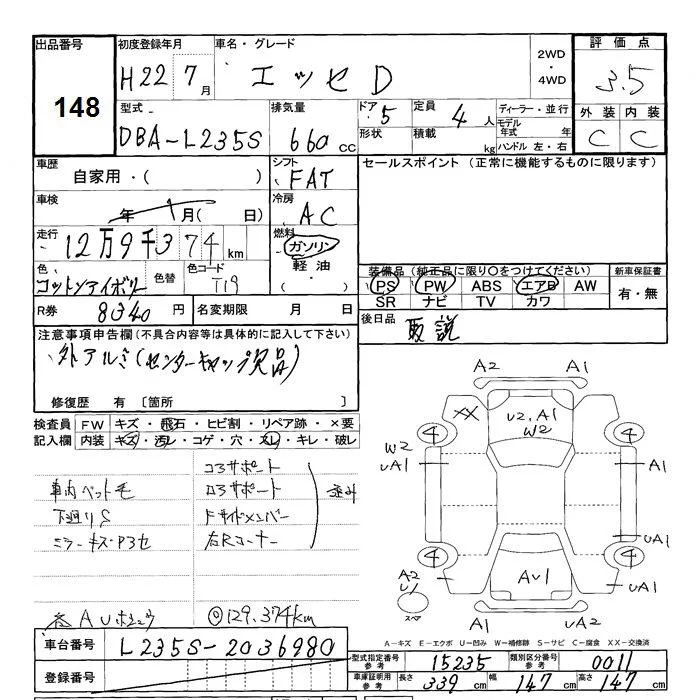 出品番号
148
初度登録年月
H22 7月
車名・グレード
エッセ D
2WD
・
4WD
評価点
3.5
型式
DBA-L235S
排気量
660 cc
ドア 5
形状
定員 4 人
積載 kg
ディーラー・並行
モデル年式 年
ハンドル 左・右
外装 内装
C C
車歴
自家用・( )
シフト
FAT
セールスポイント (正常に機能するものに限ります)
車検
年 月( 日)
冷房
AC
走行
12万9千374km
燃料
ガソリン
軽油
・
( )
色
コットンアイボリー
色替
色コード
T19
装備品 (純正品に限り○をつけてください)
PS PW ABS エアB AW
SR ナビ TV カワ
新車保証書
有・無
R券 8340 円
名変期限 月 日
後日品
取説
注意事項申告欄(不具合内容等は具体的に記入して下さい)
外アルミ(センターキャップ欠品)
修復歴 有〔箇所 〕
検査員 FW キズ・飛石・ヒビ割・リペア跡・×要
記入欄 内装 キズ・汚レ・コゲ・穴・スレ・キレ・破レ
コアサポート
車内ペット毛
ロアサポート
歪み
下廻りS
Fサイドメンバー
ミラーキズ・アセ
右Rコーナー
AU
◎129.374km
A2 A1
XX
U2.A1
W2
4 4
W2
UA1 A1
UA1
4 4
A2
U1
AU1
UA1
UA2 A1
スペア
A-キズ E-エクボ U-凹み W-補修跡 S-サビ C-腐食 XX-交換済
車台番号
L235S-2036980
登録番号
型式指定番号 参考
15235
類別区分番号 参考
0011
車庫証明用 参考
長さ 339 cm
幅 147 cm
高さ 147 cm